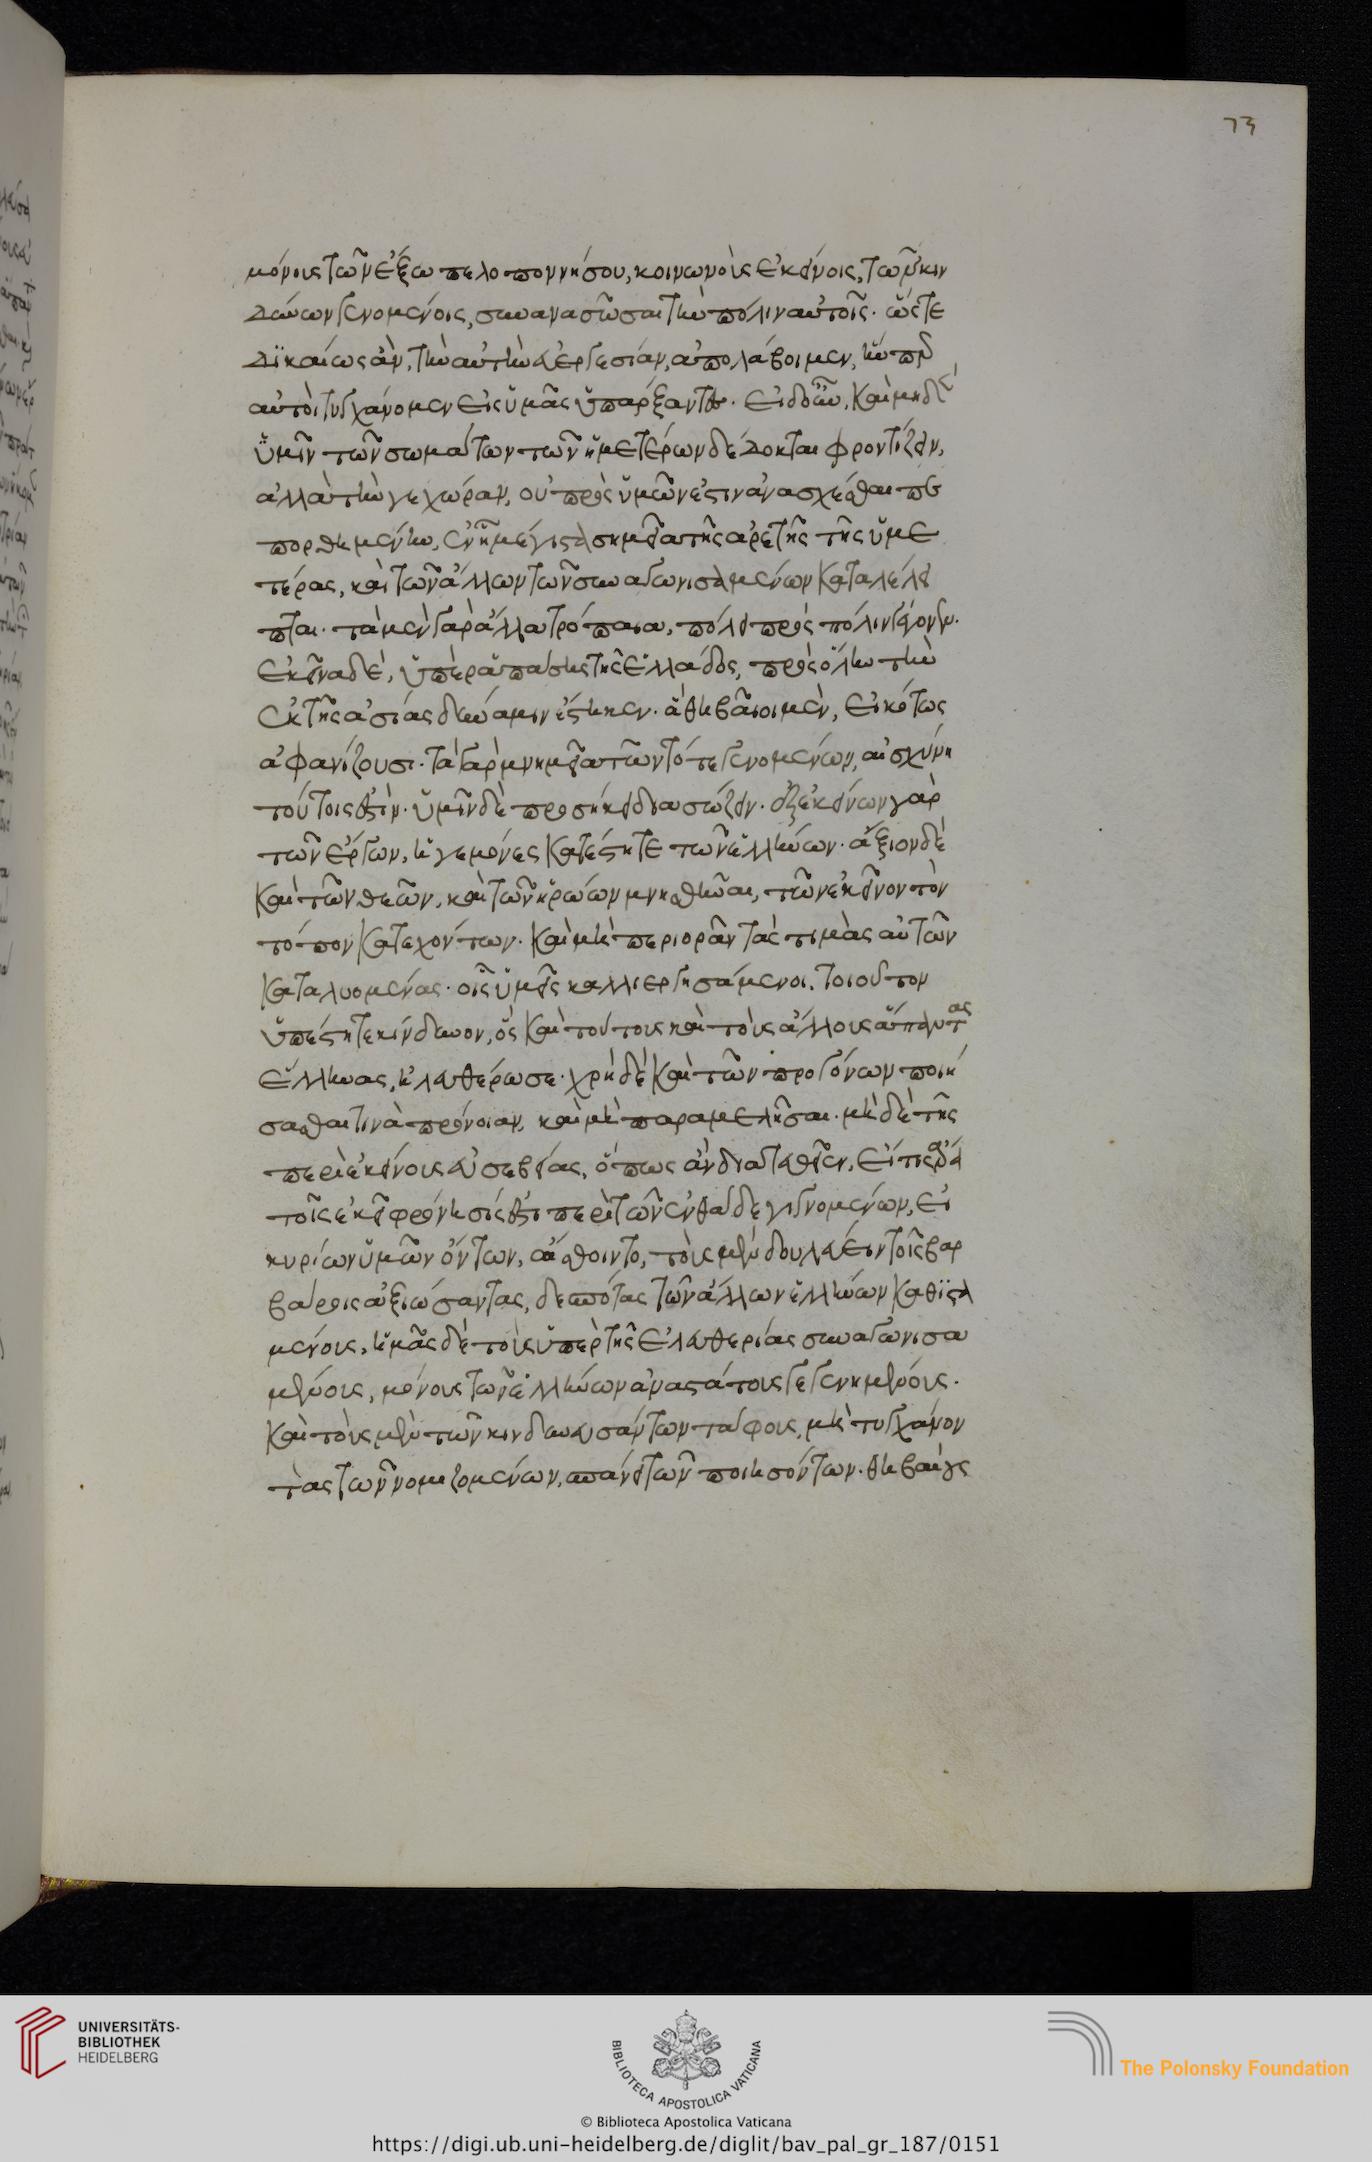 73
μόνους τῶν ἔξω πελοποννήσου, κοινωνοὺς ἐκείνοις, τῶν κιν
δύνων γενομένοις, συνανασῶσαι τὴν πόλιν αὐτοῖς. ὥστε
δϊκαίως ἂν, τὴν αὐτὴν εὐεργεσίαν, ἀπολάβοιμεν, ἥνπερ
αὐτοὶ τυγχάνομεν εἰς ὑμᾶς ὑπάρξαντες. εἰ δ' οὖν, καὶ μηδὲν
ὑμῖν τῶν σωμάτων τῶν ἡμετέρων δέδοκται φροντίζειν,
ἀλλὰ τήν γε χώραν, οὐ πρὸς ὑμῶν ἐστιν ἀνασχέσθαι πε
πορθημένην, ἐν ᾗ μέγιστα σημεῖα τῆς ἀρετῆς τῆς ὑμε
τέρας, καὶ τῶν ἄλλων τῶν συναγωνισαμένων καταλέλει
πται. τὰ μὲν γὰρ ἄλλα τρόπαια, πόλει πρὸς πόλιν γέγονεν.
ἐκεῖνα δὲ, ὑπὲρ ἁπάσης τῆς ἑλλάδος, πρὸς ὅλην τὴν
ἐκ τῆς ἀσίας δύναμιν ἕστηκεν. ἃ θηβαῖοι μὲν, εἰκότως
ἀφανίζουσι. τὰ γὰρ μνημεῖα τῶν τότε γενομένων, αἰσχύνη
τούτοις ἐστίν. ὑμῖν δὲ προσήκει διασώζειν. ἐξ ἐκείνων γὰρ
τῶν ἔργων, ἡγεμόνες κατέστητε τῶν ἑλλήνων. ἄξιον δὲ
καὶ τῶν θεῶν, καὶ τῶν ἡρώων μνησθῆναι, τῶν ἐκεῖνον τὸν
τόπον κατεχόντων. καὶ μὴ περιορᾶν τὰς τιμὰς αὐτῶν
καταλυομένας. οἷς ὑμεῖς καλλιεργησάμενοι, τοιοῦτον
ὑπέστητε κίνδυνον, ὃς καὶ τούτους καὶ τοὺς ἄλλους ἅπαντας
ἕλληνας, ἠλευθέρωσε. χρὴ δὲ καὶ τῶν προγόνων ποιή
σασθαί τινα πρόνοιαν, καὶ μὴ παραμελῆσαι. μὴδὲ τῆς
περὶ ἐκείνους εὐσεβείας, ὅπως ἂν διατεθεῖεν, εἴ τις ἄρα
τοῖς ἐκεῖ φρόνησίς ἐστι περὶ τῶν ἐνθάδε γιγνομένων, εἰ
κυρίων ὑμῶν ὄντων, αἴσθοιντο, τοὺς μὲν δουλεύειν τοῖς βαρ
βάροις ἀξιώσαντας, δεσπότας τῶν ἄλλων ἑλλήνων καθϊστα
μένους, ἡμᾶς δὲ τοὺς ὑπὲρ τῆς ἐλευθερίας συναγωνισα
μένους, μόνους τῶν ἑλλήνων ἀναστάτους γεγενημένους.
καὶ τοὺς μὲν τῶν κινδυνευσάντων τάφους, μὴ τυγχάνον
τας τῶν νομιζομένων, σπάνει τῶν ποιησόντων. θηβαίους
UNIVERSITÄTS-
BIBLIOTHEK
HEIDELBERG
BIBLIOTECA APOSTOLICA VATICANA
The Polonsky Foundation
© Biblioteca Apostolica Vaticana
https://digi.ub.uni-heidelberg.de/diglit/bav_pal_gr_187/0151